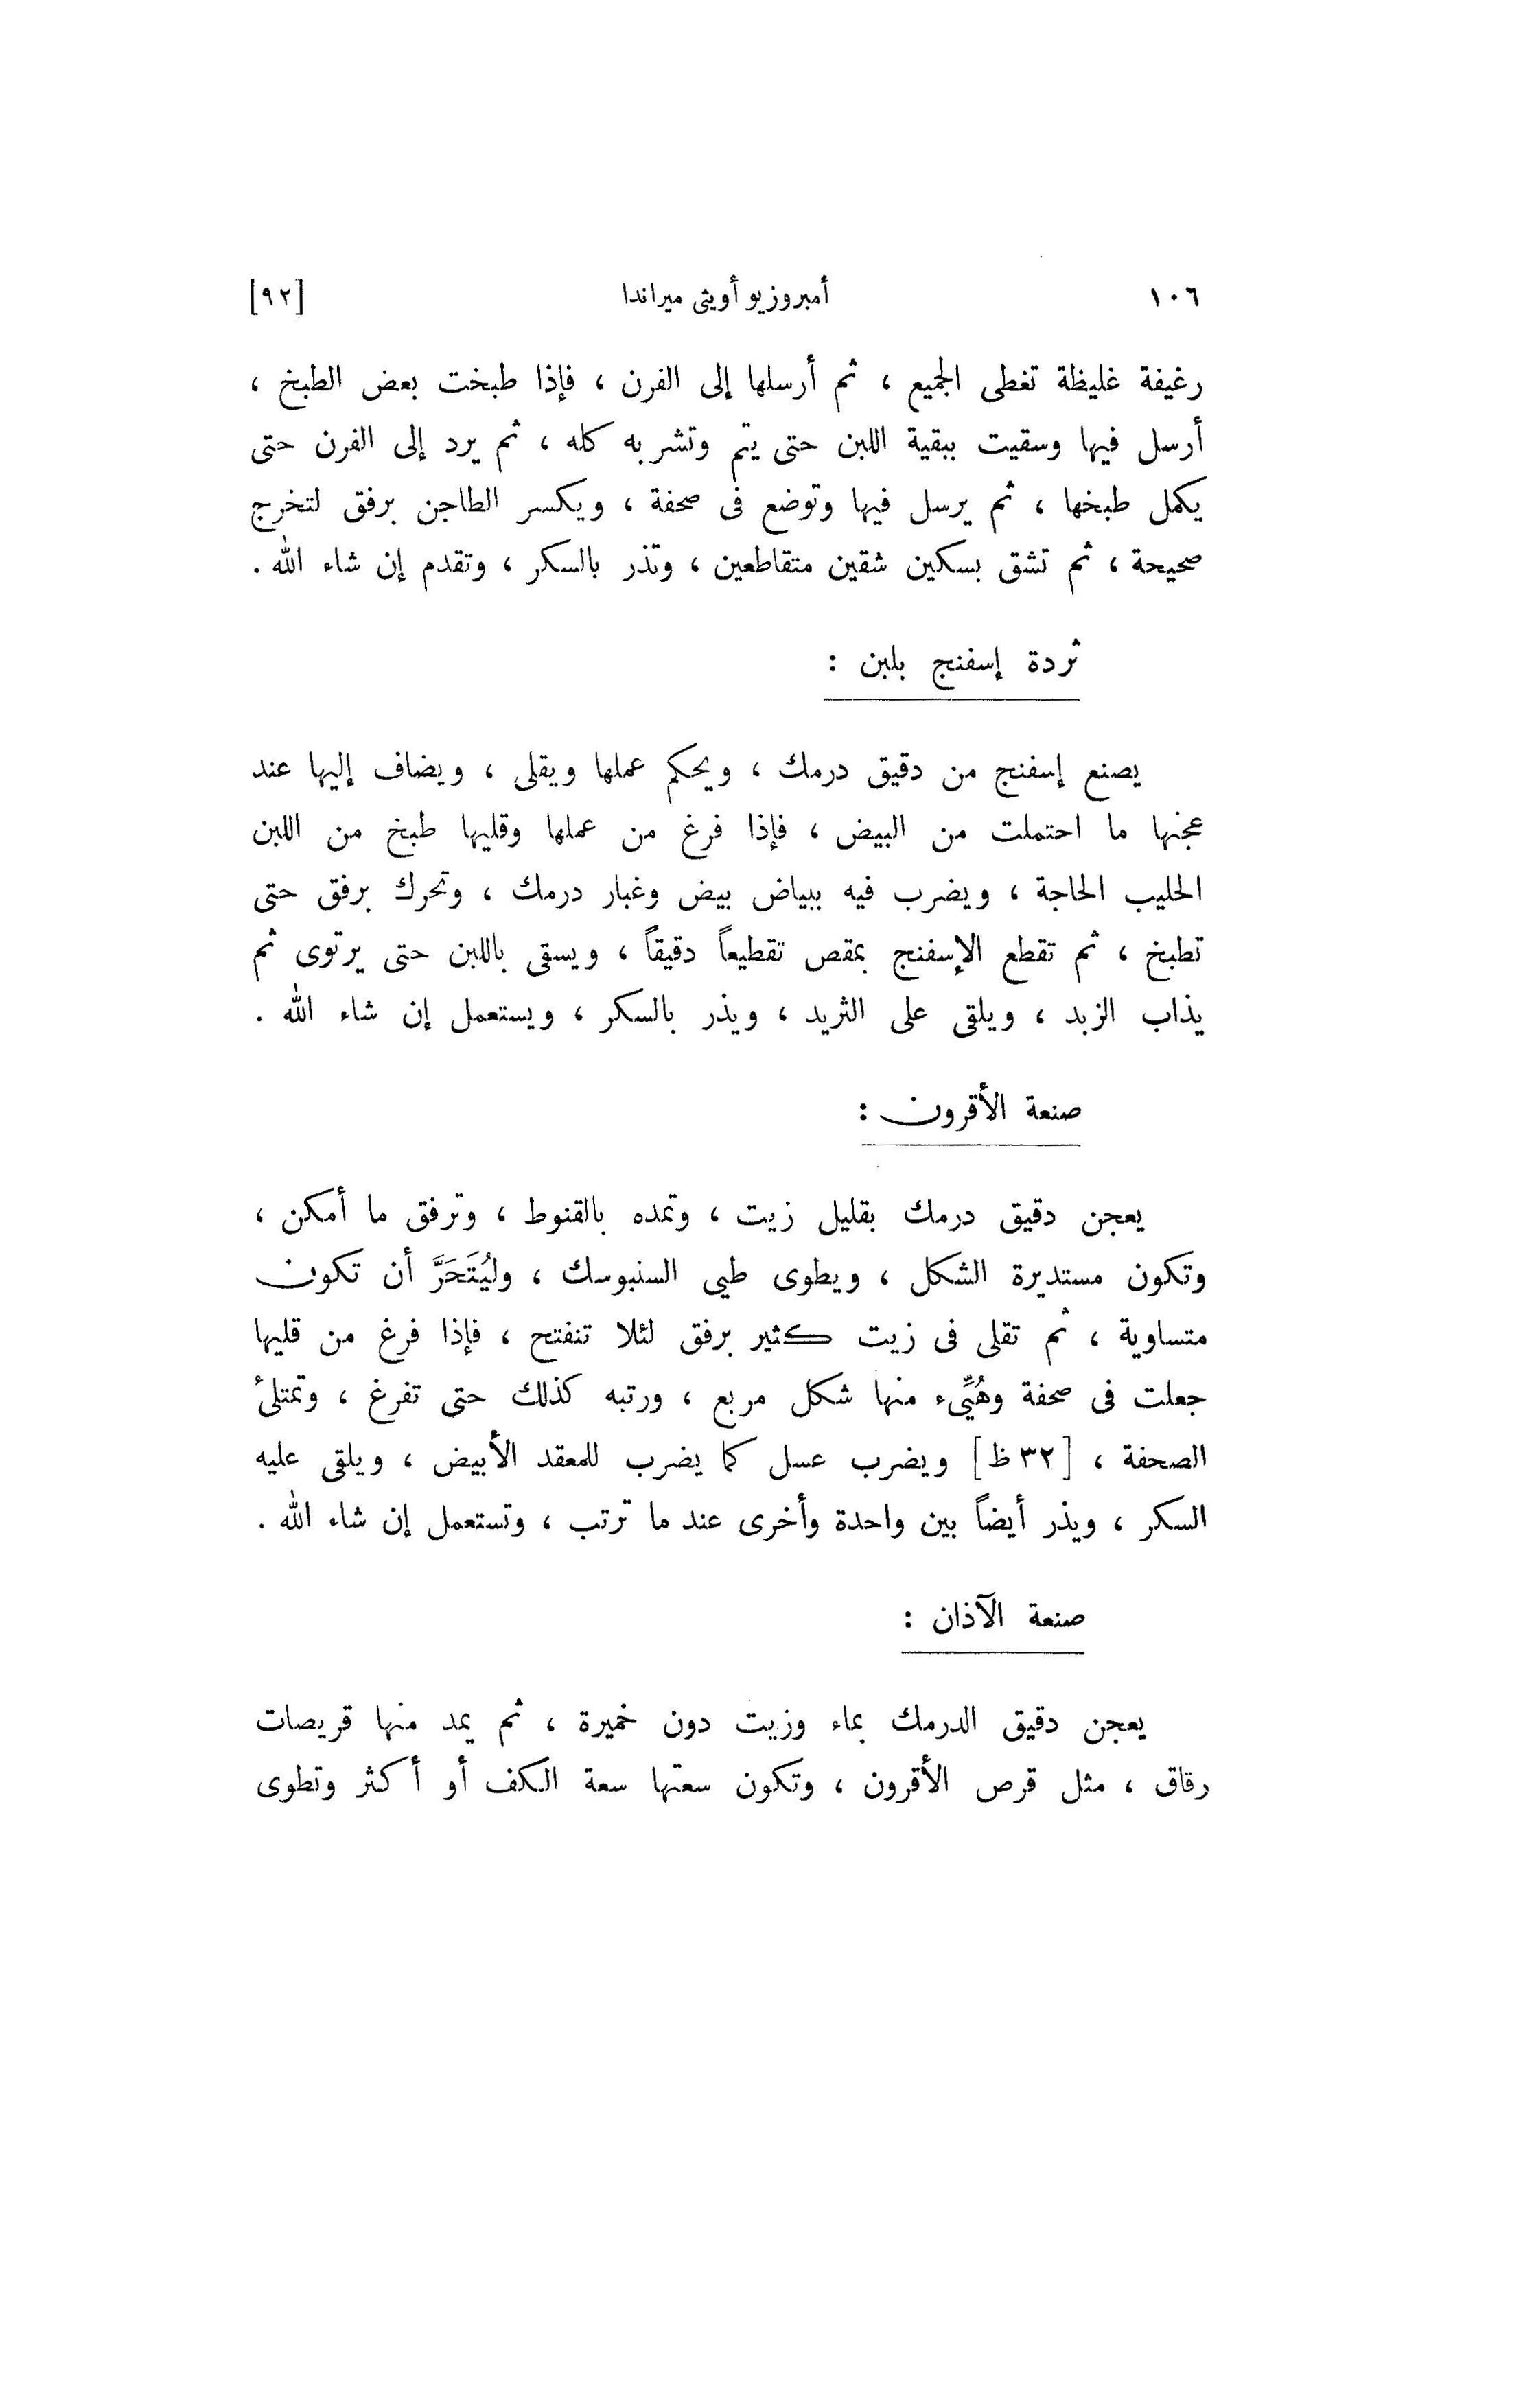 ١٠٦ أمبروزيو أويثى ميراندا [٩٢]
رغيفة غليظة تغطى الجميع ، ثم أرسلها إلى الفرن ، فإذا طبخت بعض الطبخ ،
أرسل فيها وسقيت ببقية اللبن حتى يتم وتشربه كله ، ثم يرد إلى الفرن حتى
يكمل طبخها ، ثم يرسل فيها وتوضع فى صحفة ، ويكسر الطاجن برفق لتخرج
صحيحة ، ثم تشق بسكين شقين متقاطعين ، وتذر بالسكر ، وتقدم إن شاء الله .
ثردة إسفنج بلبن :
يصنع إسفنج من دقيق درمك ، ويحكم عملها ويقلى ، ويضاف إليها عند
عجنها ما احتملت من البيض ، فإذا فرغ من عملها وقليها طبخ من اللبن
الحليب الحاجة ، ويضرب فيه ببياض بيض وغبار درمك ، وتحرك برفق حتى
تطبخ ، ثم تقطع الإسفنج بمقص تقطيعاً دقيقاً ، ويسقى باللبن حتى يرتوى ثم
يذاب الزبد ، ويلقى على الثريد ، ويذر بالسكر ، ويستعمل إن شاء الله .
صنعة الأقرون :
يعجن دقيق درمك بقليل زيت ، وتمده بالقنوط ، وترفق ما أمكن ،
وتكون مستديرة الشكل ، ويطوى طيى السنبوسك ، وليُتَحَرَّ أن تكون
متساوية ، ثم تقلى فى زيت كثير برفق لئلا تنفتح ، فإذا فرغ من قليها
جعلت فى صحفة وهُيِّىء منها شكل مربع ، ورتبه كذلك حتى تفرغ ، وتمتلئ
الصحفة ، [٣٢ ظ] ويضرب عسل كما يضرب للمعقد الأبيض ، ويلقى عليه
السكر ، ويذر أيضاً بين واحدة وأخرى عند ما ترتب ، وتستعمل إن شاء الله .
صنعة الآذان :
يعجن دقيق الدرمك بماء وزيت دون خميرة ، ثم يمد منها قريصات
رقاق ، مثل قرص الأقرون ، وتكون سعتها سعة الكف أو أكثر وتطوى